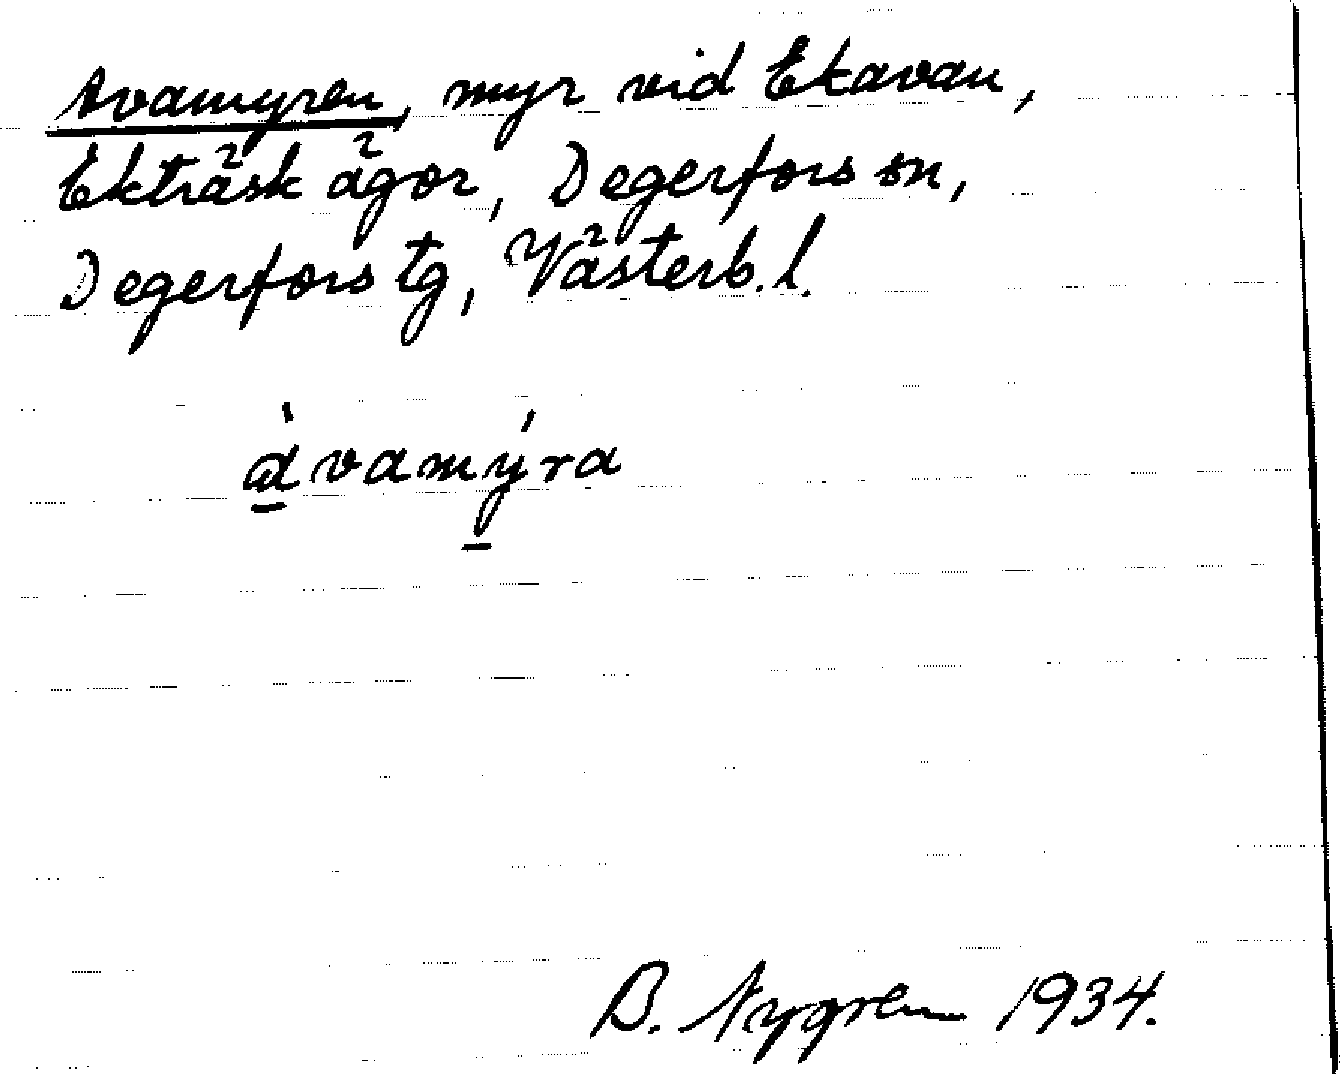 Avamyren, myr vid Ekavan,
Ekträsk ägor, Degerfors sn,
Degerfors tg, Västerb.l.
àvamýra
B. Nygren 1934.